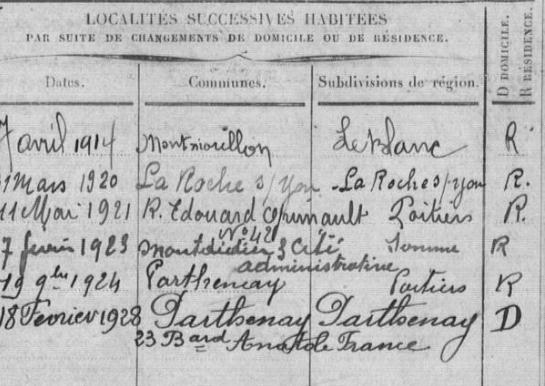 LOCALITÉS SUCCESSIVES HABITÉES
PAR SUITE DE CHANGEMENTS DE DOMICILE OU DE RÉSIDENCE.
Dates. Communes. Subdivisions de région. D DOMICILE. R RÉSIDENCE.
7 avril 1914 Montmorillon Le blanc R
1 Mars 1920 La Roche s/yon La Roche s/yon R.
11 Mai 1921 R. Edouard Poitiers R.
No 42
7 juin 1923 Montdidier 3 Cité Somme R
administrative
19 9bre 1924 Parthenay Poitiers R
18 Fevrier 1928 Parthenay Parthenay D
23 Bard Anatole France